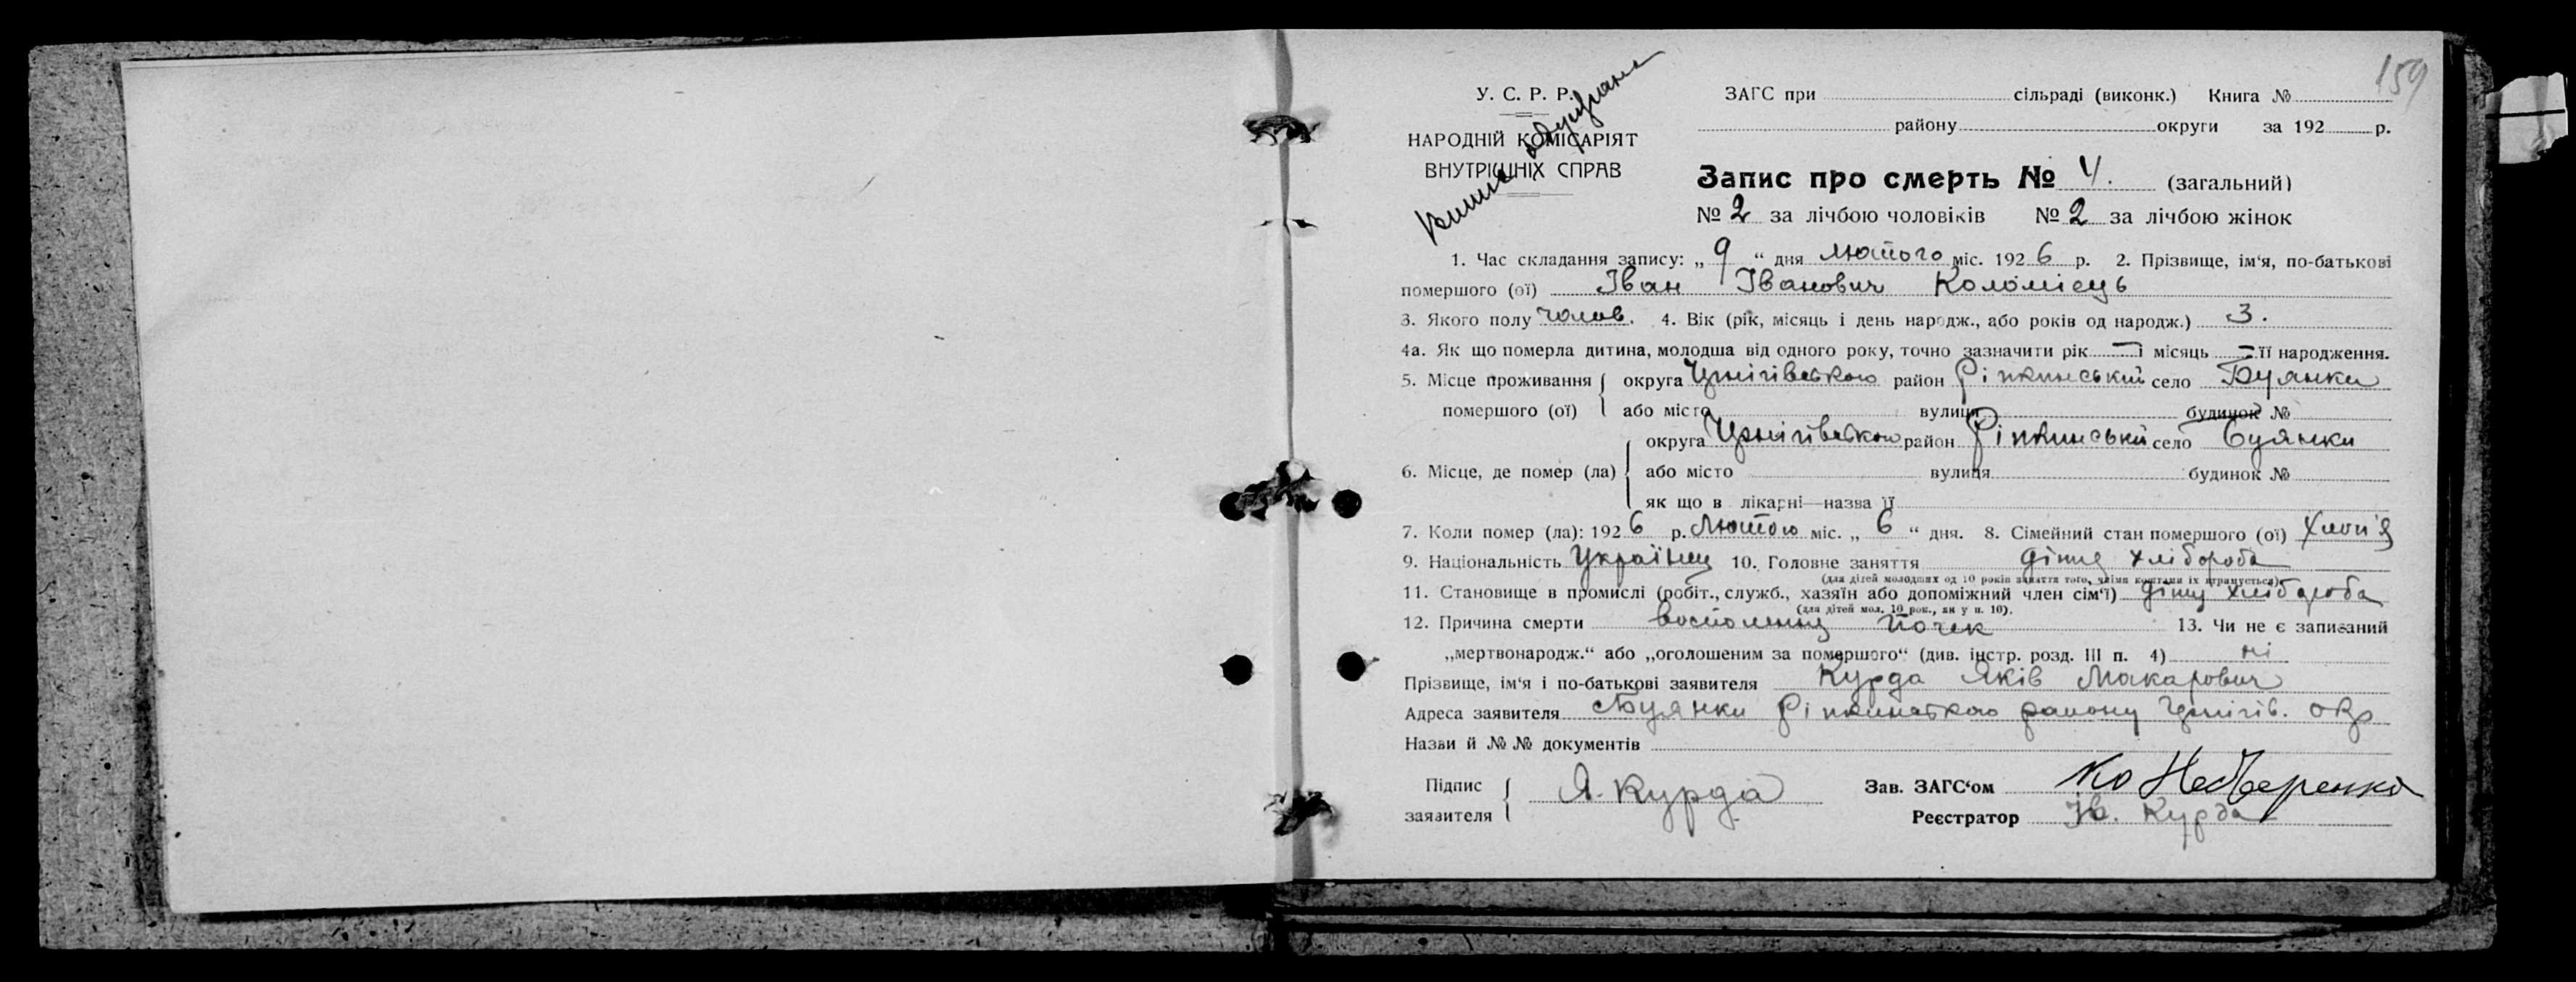 159
У. С. Р. Р.
НАРОДНІЙ КОМІСАРІЯТ
ВНУТРІШНІХ СПРАВ
ЗАГС при сільраді (виконк.) Книга №
району округи за 192 р.
Запис про смерть № 4. (загальний)
№ 2 за лічбою чоловіків № 2 за лічбою жінок
1. Час складання запису: „ 9 “ дня лютого міс. 192 6 р. 2. Прізвище, ім‘я, по-батькові
помершого (ої) Іван Іванович Коломієць
3. Якого полу чолов. 4. Вік (рік, місяць і день народж., або років од народж.) 3.
4а. Як що померла дитина, молодша від одного року, точно зазначити рік — і місяць — її народження.
5. Місце проживання округа район Ріпкинський село Буянки
помершого (ої) або місто вулиця будинок №
округа район Ріпкинський село Буянки
6. Місце, де помер (ла) або місто вулиця будинок №
як що в лікарні—назва її
7. Коли помер (ла): 192 6 р. Лютого міс. „ 6 “ дня. 8. Сімейний стан помершого (ої)
9. Національність Українец 10. Головне заняття хлібороба
(для дітей молодших од 10 років заняття того, чиїми коштами їх втримується)
11. Становище в промислі (робіт., служб., хазяїн або допоміжний член сім‘ї) хлібороба
(для дітей мол. 10 рок., як у п. 10).
12. Причина смерти почек 13. Чи не є записаний
„мертвонародж.“ або „оголошеним за помершого“ (див. інстр. розд. III п. 4) ні
Прізвище, ім‘я і по-батькові заявителя Курда Яків Макарович
Адреса заявителя Буянки Ріпкинського району Чернігів. окр
Назви й №№ документів
Підпис заявителя Я. Курда
Зав. ЗАГС‘ом
Реєстратор Ів. Курда